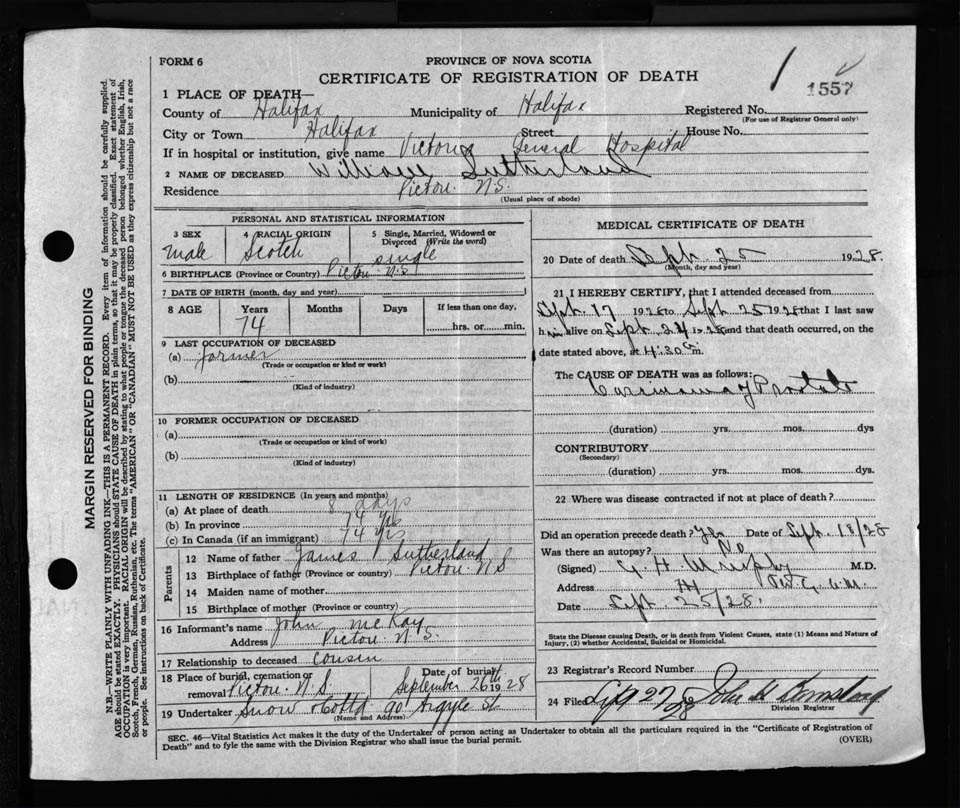 FORM 6
PROVINCE OF NOVA SCOTIA
CERTIFICATE OF REGISTRATION OF DEATH
1557
1 PLACE OF DEATH—
County of Halifax Municipality of Halifax Registered No.
(For use of Registrar General only)
City or Town Halifax Street House No.
If in hospital or institution, give name Victoria General Hospital
2 NAME OF DECEASED William Sutherland
Residence Pictou N.S.
(Usual place of abode)
PERSONAL AND STATISTICAL INFORMATION
3 SEX 4 RACIAL ORIGIN 5 Single, Married, Widowed or Divorced (Write the word)
Male Scotch Single
6 BIRTHPLACE (Province or Country) Pictou N.S
7 DATE OF BIRTH (month, day and year)
8 AGE Years Months Days If less than one day,
74 hrs. or min.
9 LAST OCCUPATION OF DECEASED
(a) Farmer
(Trade or occupation or kind or work)
(b)
(Kind of industry)
10 FORMER OCCUPATION OF DECEASED
(a)
(Trade or occupation or kind of work)
(b)
(Kind of industry)
11 LENGTH OF RESIDENCE (In years and months)
(a) At place of death 8 days
(b) In province 74 yrs
(c) In Canada (if an immigrant) 74 yrs
Parents
12 Name of father James Sutherland
13 Birthplace of father (Province or country) Pictou N S
14 Maiden name of mother
15 Birthplace of mother (Province or country)
16 Informant's name John McKay
Address Pictou N.S.
17 Relationship to deceased cousin
18 Place of burial, cremation or removal Pictou N.S. Date of burial September 26th 1928
19 Undertaker Snow & Co Ltd 90 Argyle St
(Name and Address)
MEDICAL CERTIFICATE OF DEATH
20 Date of death Sept. 25 1928.
(Month, day and year)
21 I HEREBY CERTIFY, that I attended deceased from
Sept. 17 1928 to Sept 25 1928 that I last saw
him alive on Sept. 24 1928 and that death occurred, on the
date stated above, at 4.30 a m.
The CAUSE OF DEATH was as follows:
Carcinoma of Prostate
(duration) yrs. mos. dys
CONTRIBUTORY
(Secondary)
(duration) yrs. mos. dys.
22 Where was disease contracted if not at place of death?
Did an operation precede death? Yes Date of Sept. 18/28
Was there an autopsy? No
(Signed) G. H. Murphy M.D.
Address
Date Sept 25/28.
State the Disease causing Death, or in death from Violent Causes, state (1) Means and Nature of
Injury, (2) whether Accidental, Suicidal or Homicidal.
23 Registrar's Record Number
24 Filed Sept 27 28 John H
Division Registrar
SEC. 46—Vital Statistics Act makes it the duty of the Undertaker or person acting as Undertaker to obtain all the particulars required in the "Certificate of Registration of
Death" and to fyle the same with the Division Registrar who shall issue the burial permit.
(OVER)
MARGIN RESERVED FOR BINDING
N.B.—WRITE PLAINLY WITH UNFADING INK—THIS IS A PERMANENT RECORD. Every item of information should be carefully supplied.
AGE should be stated EXACTLY. PHYSICIANS should STATE CAUSE OF DEATH in plain terms, so that it may be properly classified. Exact statement of
OCCUPATION is very important. RACIAL ORIGIN will be described by stating to what people or tongue the deceased person belonged whether English, Irish,
Scotch, French, German, Russian, Ruthenian, etc. The terms "AMERICAN" OR "CANADIAN" MUST NOT BE USED as they express citizenship but not a race
or people. See instructions on back of Certificate.